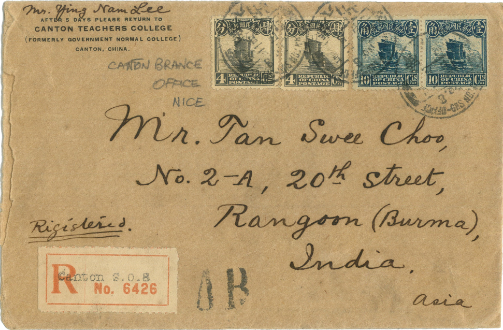 Mr. Ying Nam Lee
AFTER 5 DAYS PLEASE RETURN TO
CANTON TEACHERS COLLEGE
(FORMERLY GOVERNMENT NORMAL COLLEGE)
CANTON, CHINA.
CANTON BRANCE
OFFICE
NICE
4 4 10 10
REPUBLIC OF CHINA POSTAGE
Mr. Tan Swee Choo,
No. 2-A, 20th Street,
Rangoon (Burma),
India.
Asia
Rigistered.
R Canton S.O.8
No. 6426
AR